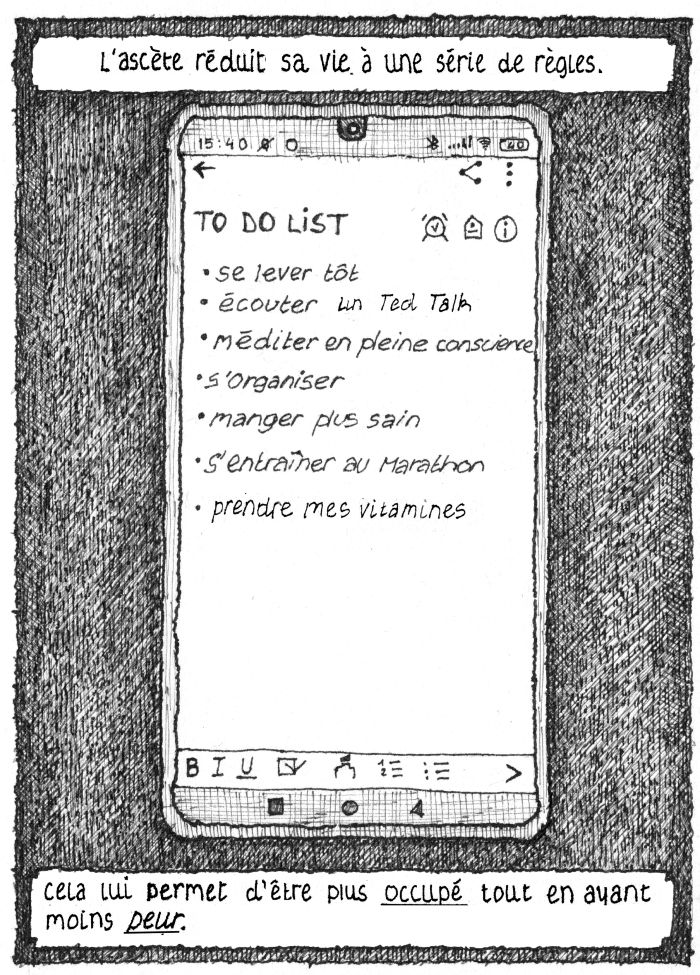 L'ascète réduit sa vie à une série de règles.
15:40 40
TO DO LIST
• se lever tôt
• écouter un Ted Talk
• méditer en pleine conscience
• s'organiser
• manger plus sain
• s'entraîner au Marathon
• prendre mes vitamines
B I U
cela lui permet d'être plus occupé tout en ayant
moins peur.